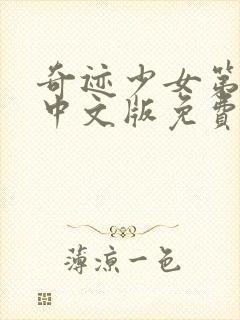 奇迹少女第
中文版免费
薄凉一色